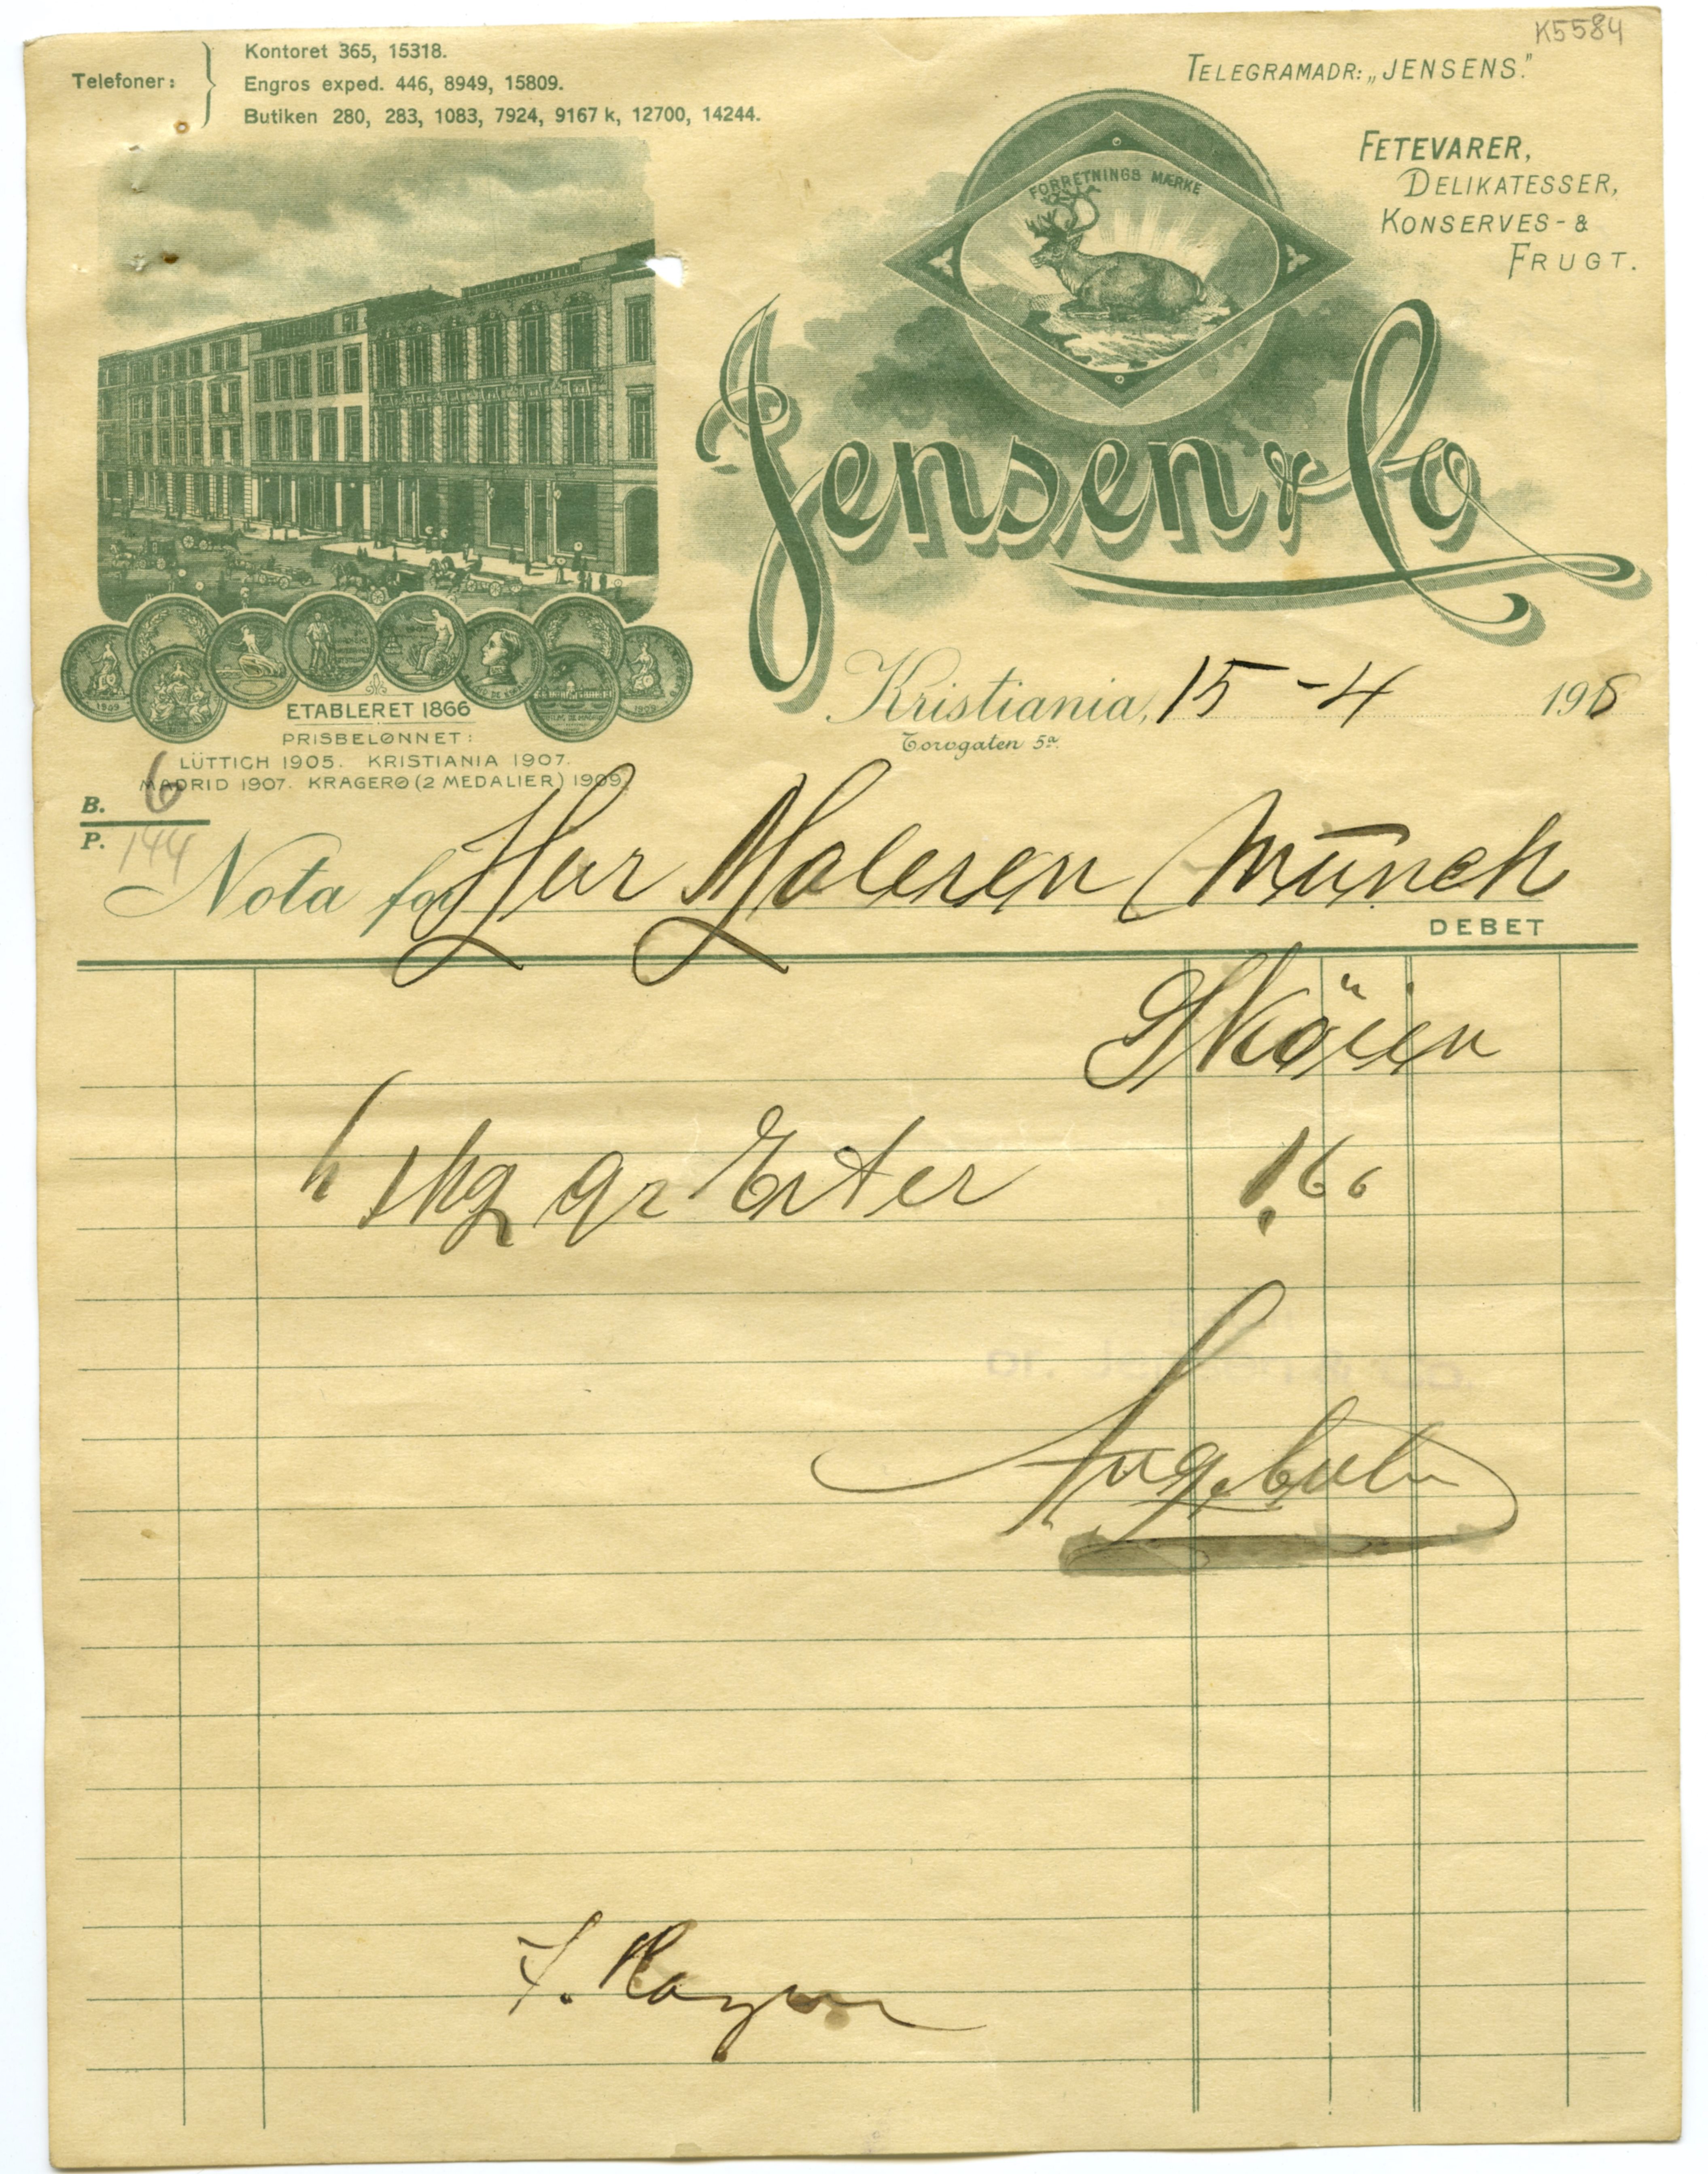 K5584
Telefoner:
Kontoret 365, 15318.
Engros exped. 446, 8949, 15809.
Butiken 280, 283, 1083, 7924, 9167 k, 12700, 14244.
TELEGRAMADR: „JENSENS."
FETEVARER,
DELIKATESSER,
KONSERVES- &
FRUGT.
FORRETNINGS MÆRKE
Jensen & Co
ETABLERET 1866
PRISBELØNNET:
LÜTTICH 1905. KRISTIANIA 1907.
MADRID 1907. KRAGERØ (2 MEDALIER) 1909.
Kristiania, 15-4 191
Torvgaten 5a.
B. 6
P. 144
Nota for Herr Maleren Münch
DEBET
Sköien
1 kg gr Erter 1 60